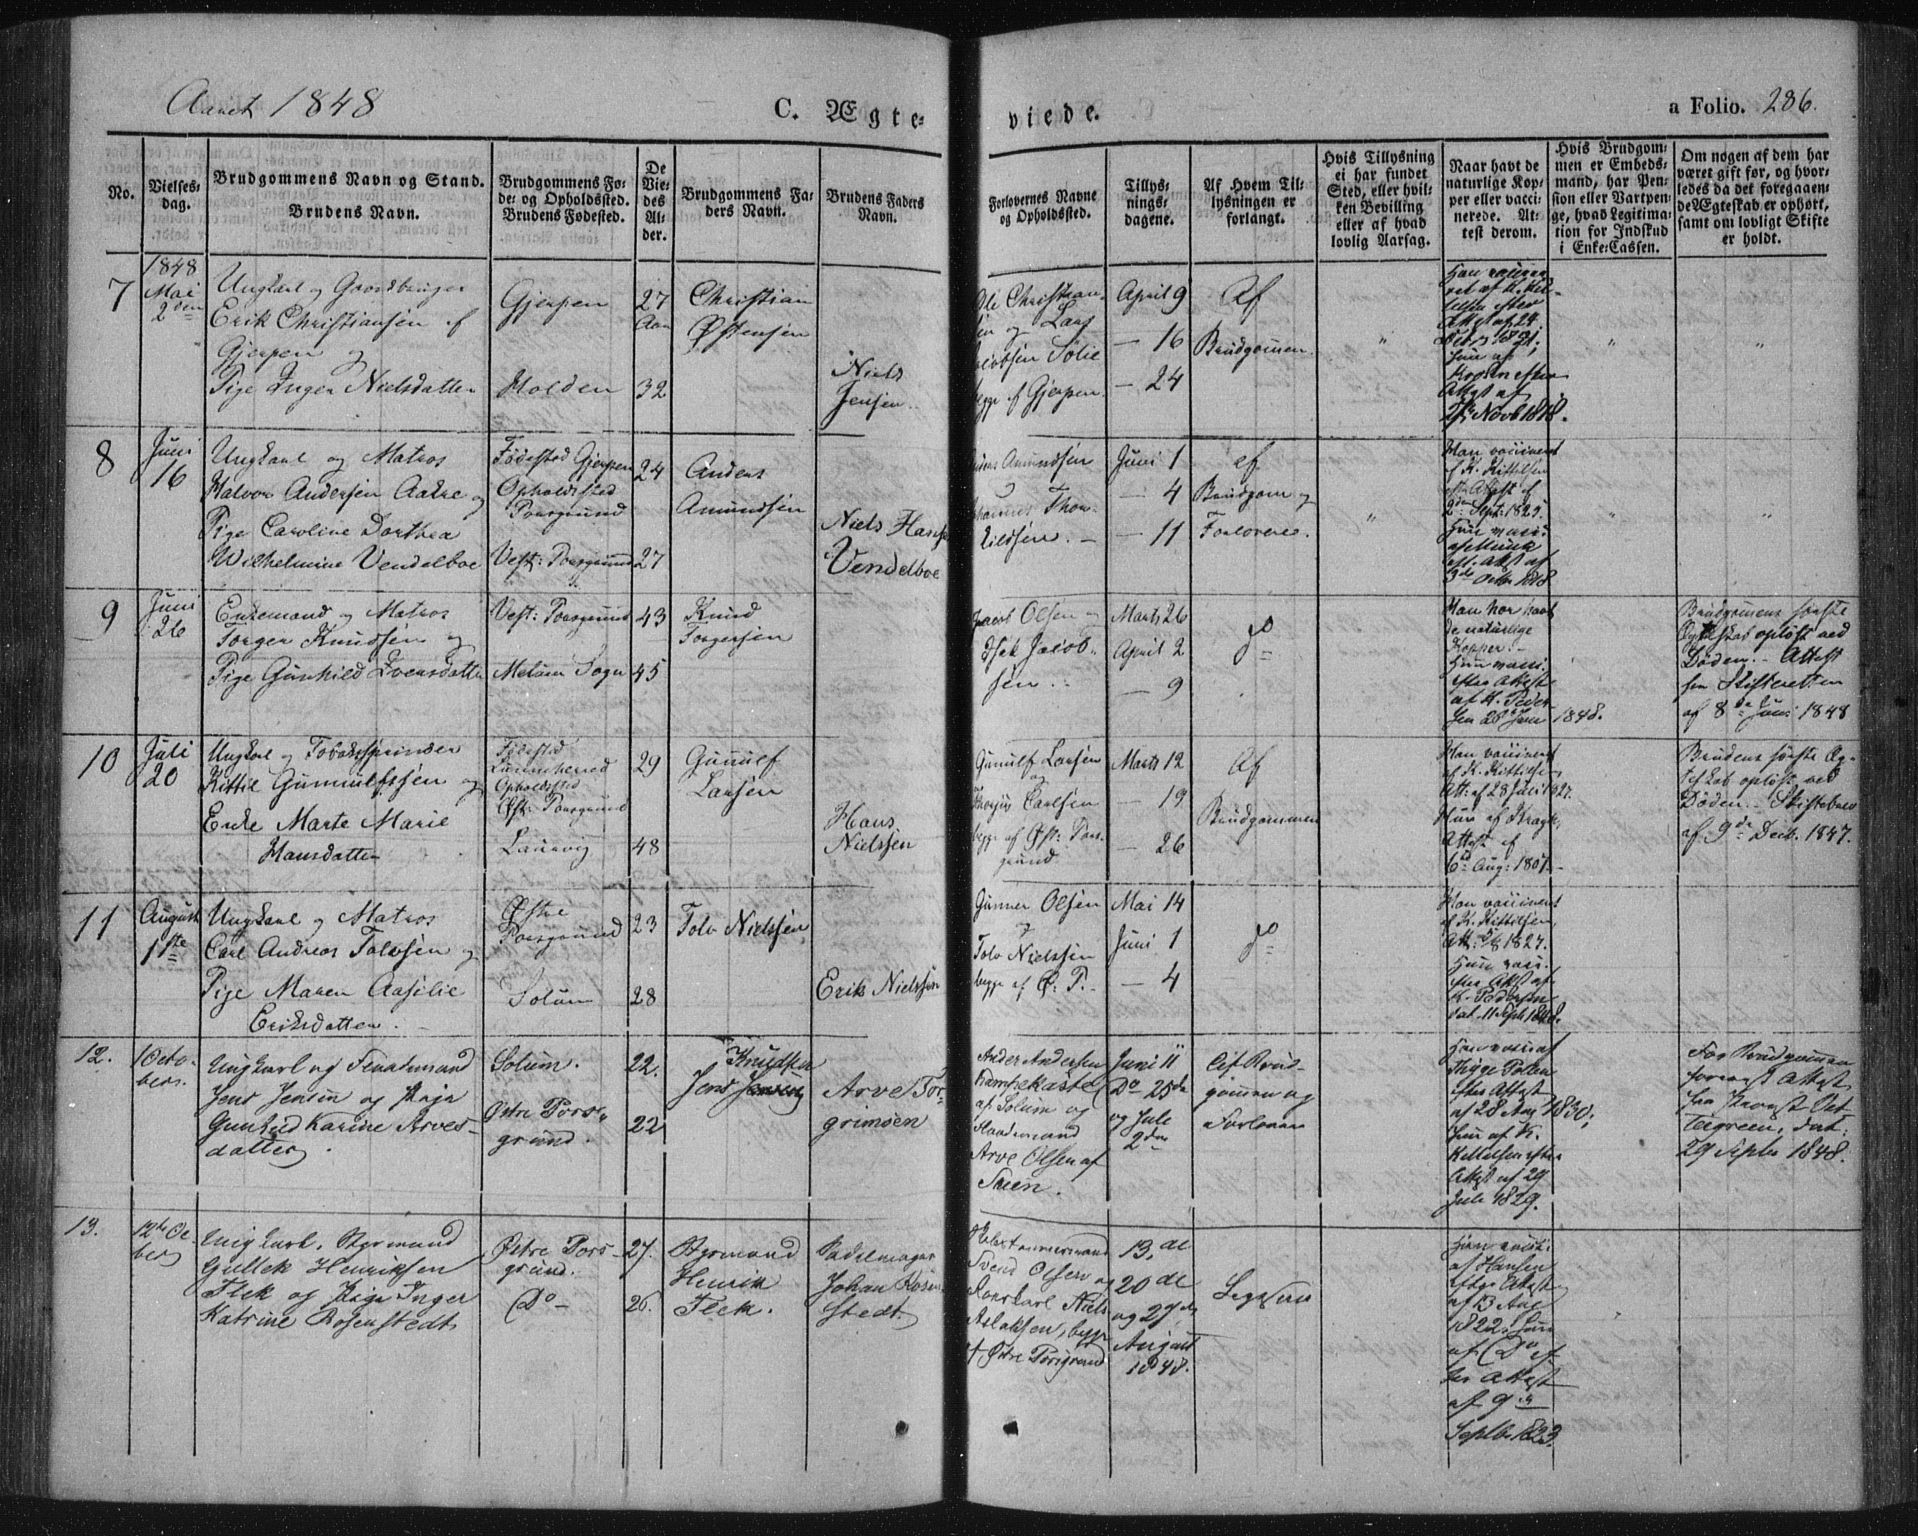 Aaret 1848
C. Ægte-
viede.
a Folio. 286.
No.
Vielses-
dag.
Brudgommens Navn og Stand.
Brudens Navn.
Brudgommens Fø-
de- og Opholdssted.
Brudens Fødested.
De
Vie-
des
Al-
der.
Brudgommens Fa-
ders Navn.
Brudens Faders
Navn.
Forlovernes Navne
og Opholdssted.
Tillys-
nings-
dagene.
Af Hvem Til-
lysningen er
forlangt.
Hvis Tillysning
ei har fundet
Sted, eller hvil-
ken Bevilling
eller af hvad
lovlig Aarsag.
Naar havt de
naturlige Kop-
per eller vacci-
nerede. At-
test derom.
Hvis Brudgom-
men er Embeds-
mand, har Pen-
sion eller Vartpen-
ge, hvad Legitima-
tion for Indskud
i Enke-Cassen.
Om nogen af dem har
været gift før, og hvor-
ledes da det foregaaen-
de Ægteskab er ophørt,
samt om lovligt Skifte
er holdt.
7
1848
Mai
2den
Ungkarl og
Erik Christiansen af
Gjerpen og
Pige Inger Nielsdatter
Gjerpen
Holden
27
Aar
32
Christian
Østensen
Niels
Jensen
Ole Christian-
sen og Lars
Jacobsen Solie
begge af Gjerpen
April 9
— 16
— 24
Af
Brudgommen
"
Attest af 24
1831;
Hun af
efter
Attest af
Novb 1818.
"
"
8
Juni
16
Ungkarl og Matros
Halvor Andersen Aakre og
Pige Caroline Dorthea
Wilhelmine Vendelboe
Fødested Gjerpen
Opholdssted
Porsgrund
Vest: Porsgrund
24
27
Anders
Amundsen
Niels Hansen
Vendelboe
Anders Amundsen
Johannes Thor-
kildsen. —
Juni 1
— 4
— 11
af
Brudgom og
Forlovere.
"
Han vaccineret
af K. Kittilsen
eft. Attest af
2den Sept: 1825.
Hun vacci:
af Munk
eft. Attst af
3de Octbr 1818
"
"
9
Juni
26
Enkemand og Matros
Torger Knudsen og
Pige Gunhild Svensdatter
Vest: Porsgrund
Melum Sogn
43
45
Knud
Torgersen
Jacob Olsen og
Isak Jacob-
sen.
Marts 26
April 2
— 9
do
Han har havt
de naturlige
Kopper. —
Hun vacci.
efter Attest
af K. Peder-
sen 28 Juni 1848.
Brudgommens første
Ægteskab opløst ved
Døden. — Attest
fra Skifteretten
af 8de Juni 1848
10
Juli
20
Ungkarl og Tobakspinder
Kittil Gunnulfsen og
Enke Marte Marie
Hansdatter
Fødested
Opholdssted
Øst: Porsgrund
Laurvig
29
48
Gunulf
Larsen
Hans
Nielssen
Gunulf Larsen
og
Carlsen
begge af Øst: Pors-
grund
Marts 12
— 19
— 26
Af
Brudgommen
Han vaccineret
af K. Kittilsen
Att: af 28 Juli 1827.
Hun af Kragh
Attest af
6te Aug: 1801. —
Brudens første Æg-
teskab opløst ved
Døden. — Skiftebrev
af 9de Decb. 1847.
11
August
1ste
Ungkarl og Matros
Carl Andreas Tolvsen og
Pige Maren Aasilie
Eriksdatter. —
Østre
Porsgrund
Solum
23
28
Tolv Nielssen
Erik Nielssen
Gunner Olsen
&
Tolv Nielssen
begge af Ø: P. —
Mai 14
Juni 1
— 4
do
Han vaccineret
af K. Kittilsen
Att: 1827.
Hun vacci.
efter Attst af
K. Pedersen
dat. 11 Septb. 1848.
12.
1 Octo-
ber.
Ungkarl og
Jens Jensen og Pige
Gunhild Karine Arves-
datter.
Solum.
Østre Pors-
grund.
22.
22
Knudsen
Jens
Arve Tor-
grimsen
Anders Andersen
af Solum og
Arve Olsen af
Skien.
Juni 11
Do 25de
og Jule
2den
Af Brud-
gommen og
Forlovere
Han vacci af
Thyge
efter Attest
af 28 Aug 1830;
Hun af K.
Kittelsen efter
Attest af 29
Jule 1829.
For Brudgommen
foreviist Attest
fra Provst
dat:
29 Septbr 1848.
13.
12te Oc-
tober
Ungkarl, Styrmand
Gullek Henriksen
Flek og Pige Inger
Katrine Rosenstedt
Østre Pors-
grund.
Do —
27.
26.
Styrmand
Henrik
Flek.
Sadelmager
Johan Rosen-
stedt
Svend Olsen og
Niels
Aslaksen, begge
af Østre Porsgrund
13de
20de
og 27de
August
1848.
Ligesaa
Han vacci:
af Hansen
efter Attest
af 13 Aug
1822. Hun
af Do ef-
ter Attest
af 9de
Septbr 1823.